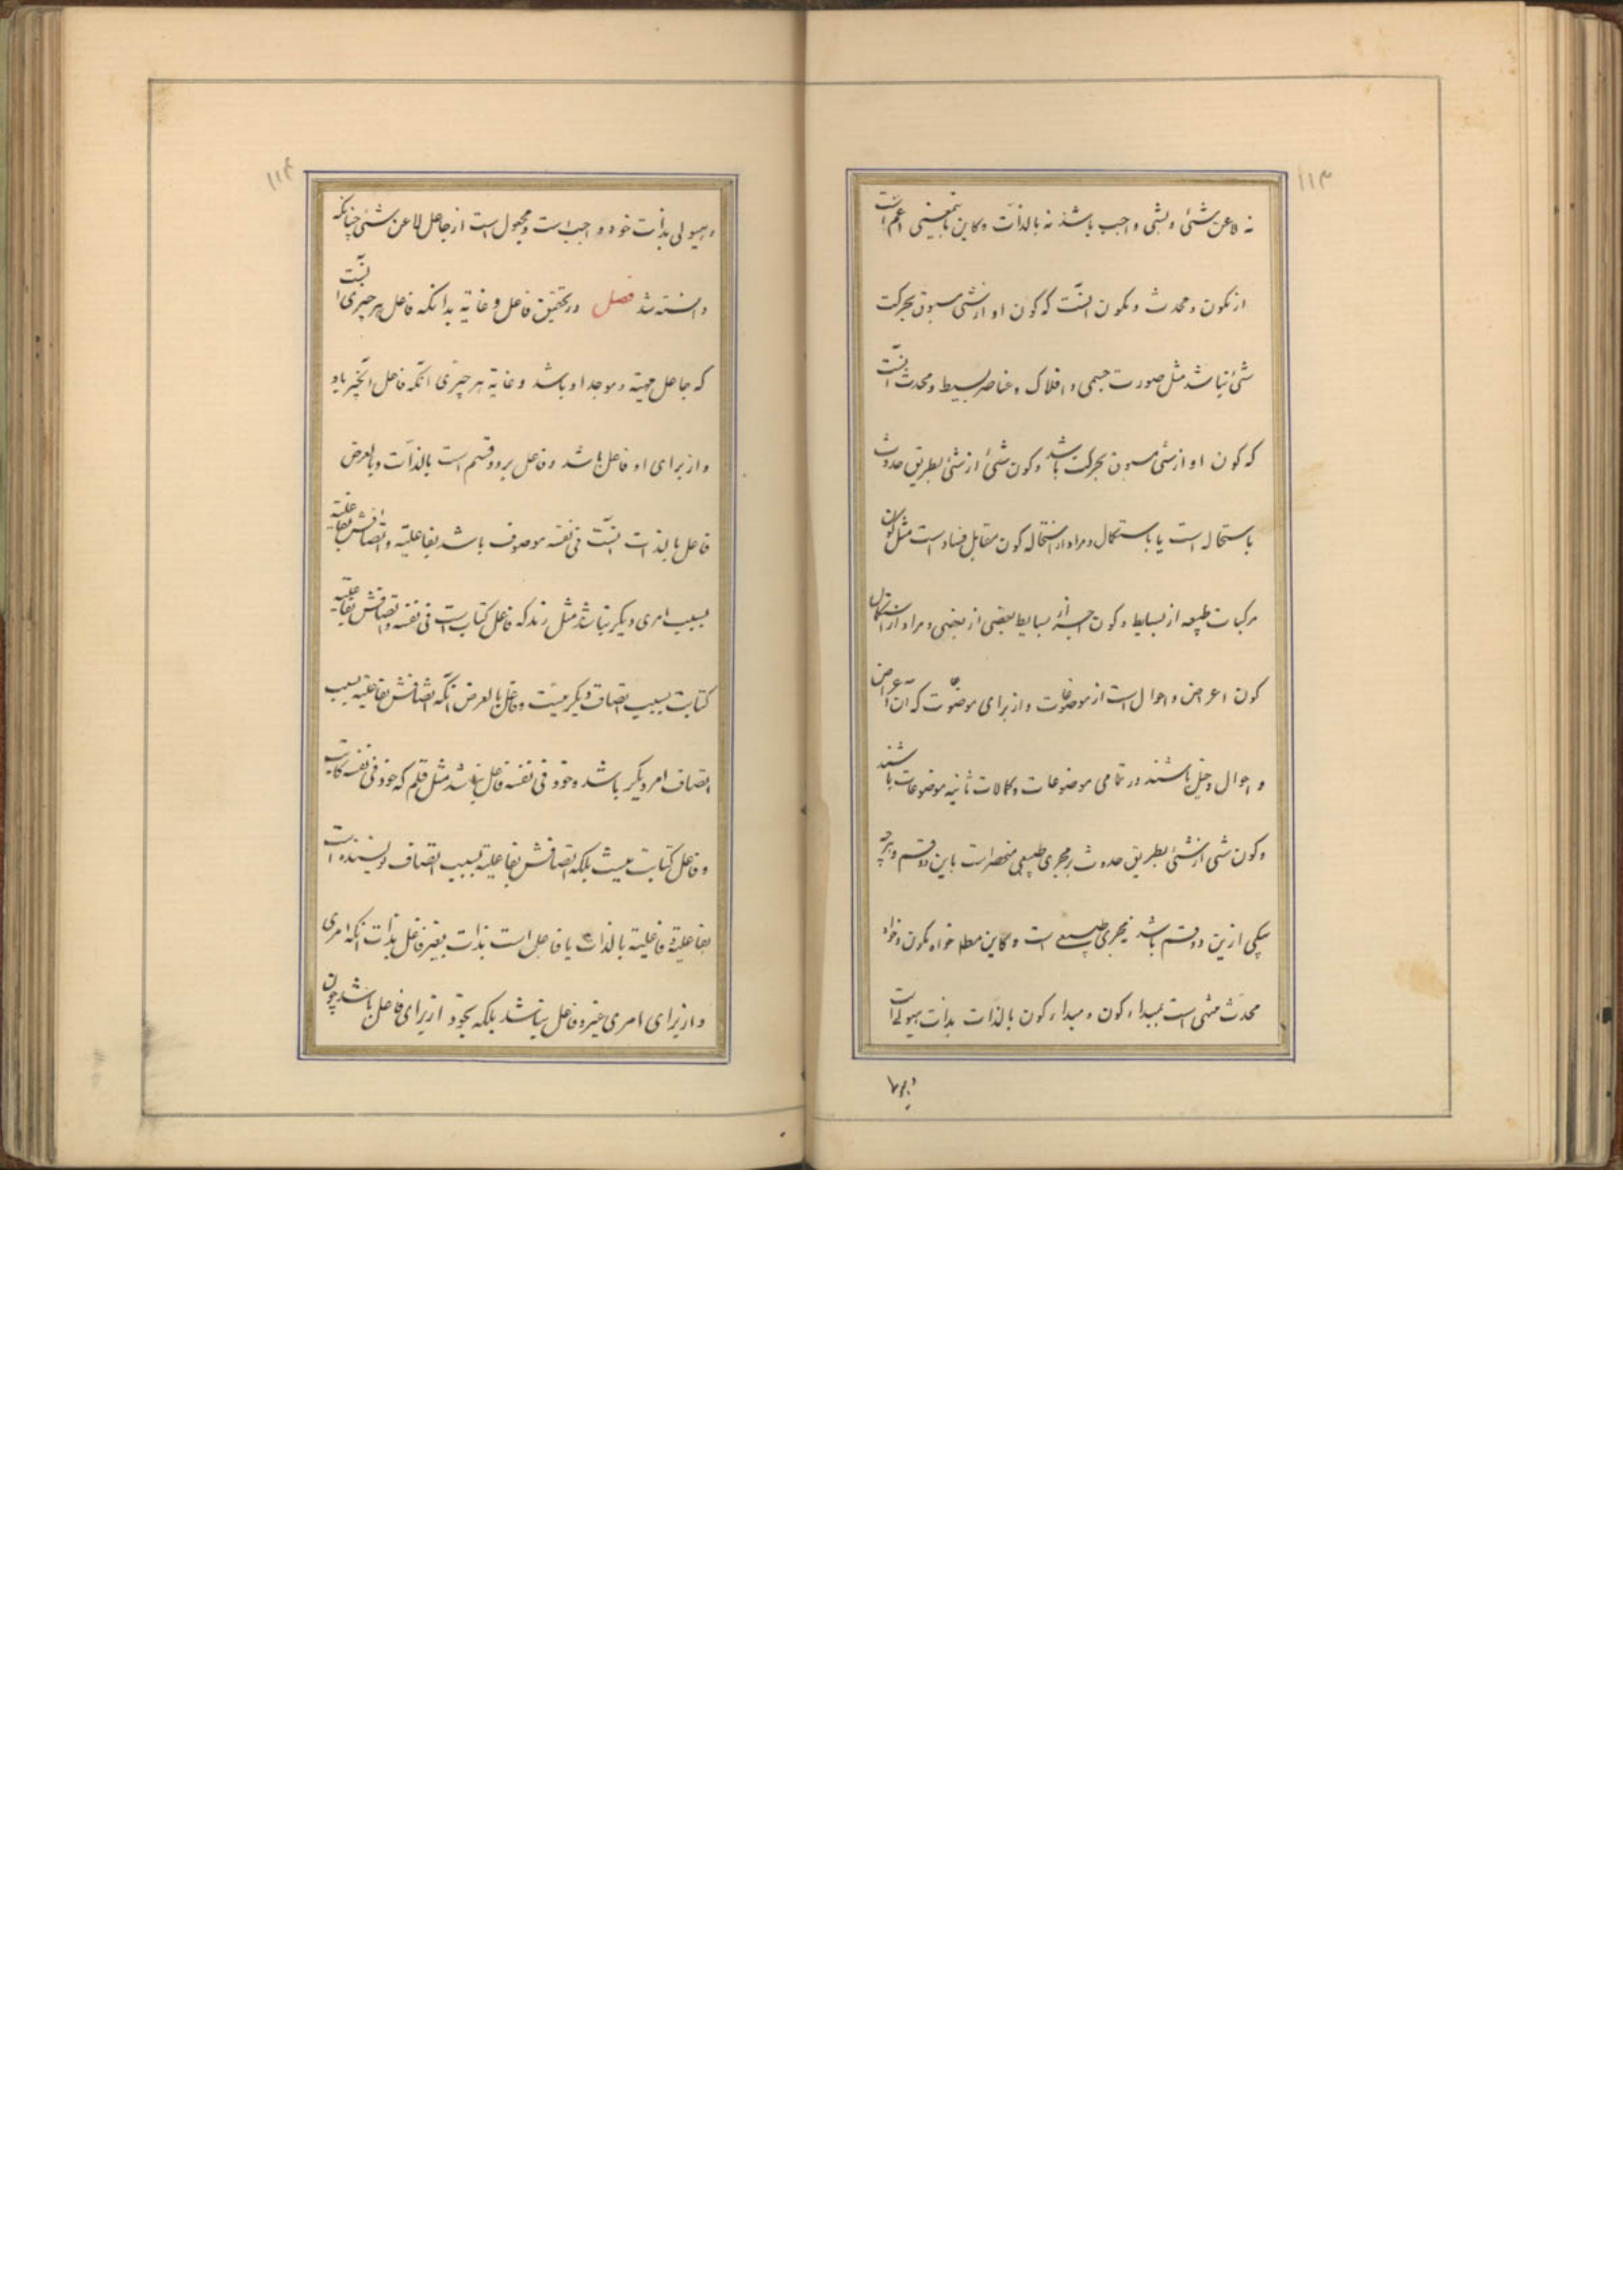 ۱۱۳
نه لا عن شئ و بشئ واجب باشد نه بالذات و کاین باینمعنی اعم است
از مکون و محدث و مکون آنست که کون او از شئ مسبوق بحرکت
شئ نباشد مثل صورت جسمی و افلاک و عناصر بسیط و محدث آنست
که کون او از شئ مسبوق بحرکت باشد و کون شئ از شئ بطریق حدوث
باستحاله است یا باستکمال و مراد از استحاله کون مقابل فساد است مثل کون
مرکبات طبیعه از بسایط و کون اجزاء بسایط بعضی از بعضی و مراد از استکمال
کون اعراض و احوال است از موضوعات و از برای موضوعات که آن اعراض
و احوال دخیل باشند در تمامی موضوعات و کمالات ثانیه موضوعات باشند
و کون شئ از شئ بطریق حدوث بر مجری طبیعی منحصر است باین دو قسم و هرچه
یکی ازین دو قسم باشد بمجری طبیعی است و کاین مطلقا خواه مکون و خواه
محدث منتهی است بمبداء کون و مبداء کون بالذات بذات هیولی است
۱۱۴
و هیولی بذات خود واجب است و مجعول است از جاعل لا عن شئ چنانکه
دانسته شد فصل در تحقیق فاعل و غایة بدانکه فاعل هر چیزی آنست
که جاعل مهیة و موجد او باشد و غایة هر چیزی آنکه فاعل آنچیز باو
و از برای او فاعل باشد و فاعل بر دو قسم است بالذات و بالعرض
فاعل بالذات آنست فی نفسه موصوف باشد بفاعلیة و اتصافش بفاعلیة
بسبب امری دیگر نباشد مثل زید که فاعل کتابت است فی نفسه و اتصافش بفاعلیة
کتابت بسبب اتصاف دیگر نیست و فاعل بالعرض آنکه اتصافش بفاعلیة بسبب
اتصاف امر دیگر باشد و خود فی نفسه فاعل نباشد مثل قلم که خود فی نفسه کاتب
و فاعل کتابت نیست بلکه اتصافش بفاعلیة بسبب اتصاف نویسنده است
بفاعلیة و فاعلیة بالذات یا فاعل است بذات بغیر فاعل بذات آنکه امری
و از برای امری غیر و فاعل نباشد بلکه بخود از برای فاعل باشد چون